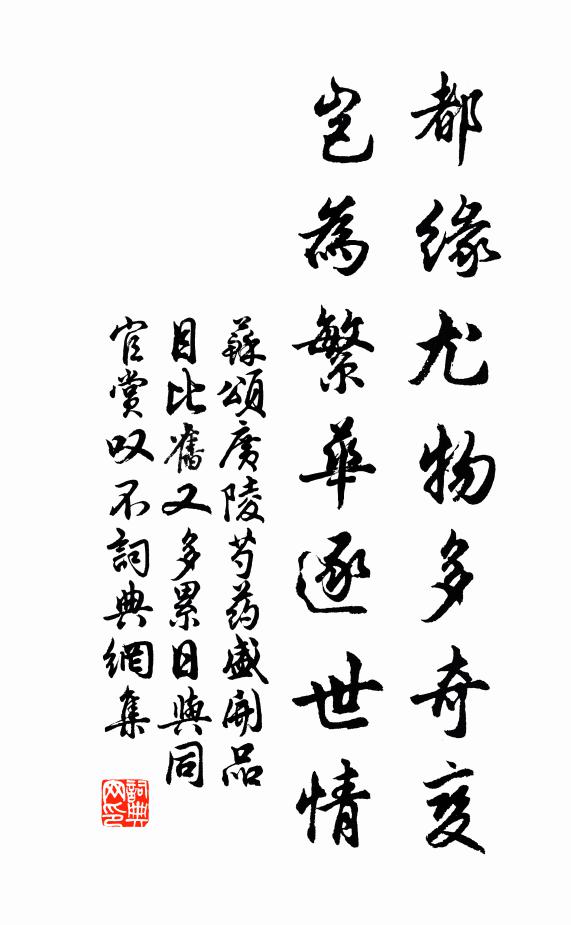 都緣尤物多奇變
豈為繁華逐世情
蘇頌廣陵芍药盛開品
目比舊又多累日與同
官賞叹不詞典網集
詞典網印